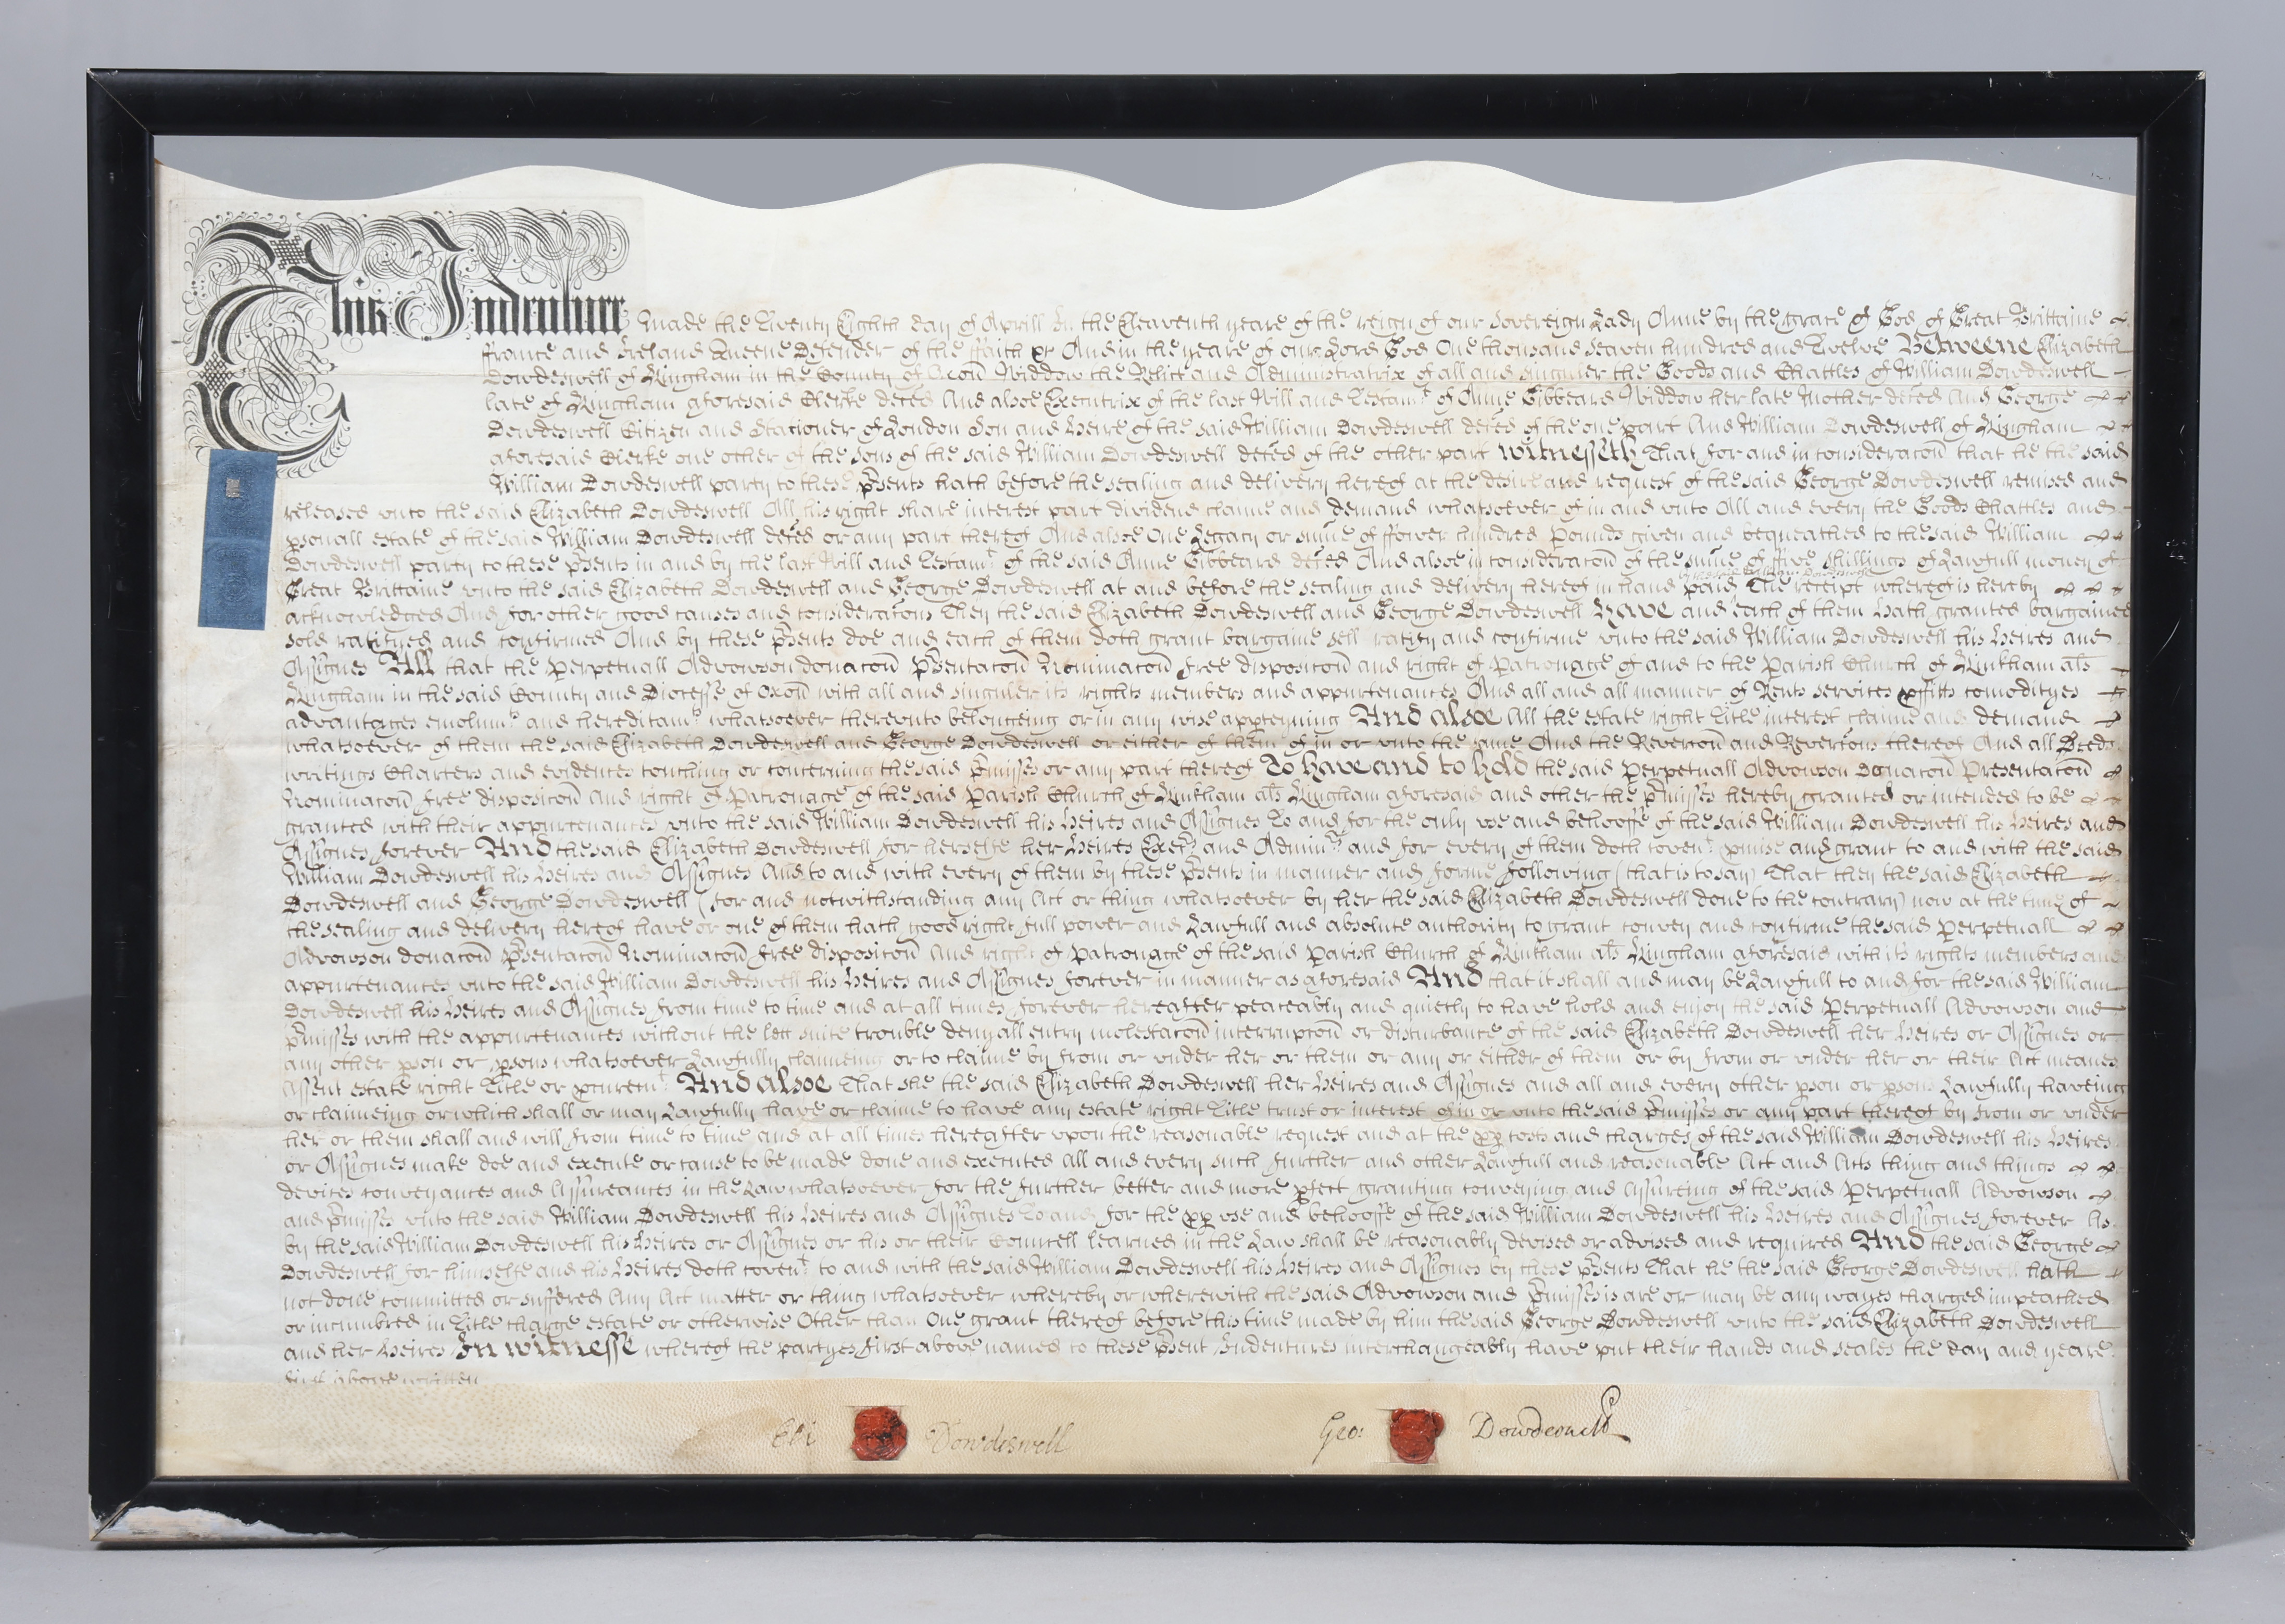 This Indenture made the Twenty Eighth day of Aprill In the Eleaventh yeare of the reign of our Sovereign Lady Anne by the grace of God of Great Brittaine
ffrance and Ireland Queene Defender of the ffaith &c And in the yeare of our Lord God One thousand seaven hundred and Twelve Betweene Elizabeth
Dowdeswell of Kingham in the County of Oxoñ Widdow the Relict and Administratrix of all and singuler the Goods and Chattles of William Dowdeswell
late of Kingham aforesaid Clerke deced And alsoe Executrix of the last Will and Testamt of Anne Gibbeard Widdow her late Mother deced And George
Dowdeswell Citizen and Stacioner of London Son and Heire of the said William Dowdeswell deced of the one part And William Dowdeswell of Kingham
aforesaid Clerke one other of the sons of the said William Dowdeswell deced of the other part Witnesseth That for and in consideracoñ that he the said
William Dowdeswell party to these p̃sents hath before the sealing and delivery hereof at the desire and request of the said George Dowdeswell remised and
released unto the said Elizabeth Dowdeswell All his right share interest part dividend claime and demand whatsoever of in and unto All and every the Goods Chattles and
psonall estate of the said William Dowdeswell deced or any part thereof And alsoe One Legacy or sum̃e of ffower hundred pounds given and bequeathed to the said William
Dowdeswell party to these p̃sents in and by the last Will and Testamt of the said Anne Gibbeard deced And alsoe in consideracoñ of the sum̃e of ffive shillings of Lawfull money of
Great Brittaine unto the said Elizabeth Dowdeswell and George Dowdeswell at and before the sealing and delivery hereof in hand paid The receipt whereof is hereby
acknowledged And for other good causes and consideracons They the said Elizabeth Dowdeswell and George Dowdeswell Have and each of them Hath granted bargained
sold ratifyed and confirmed And by these p̃sents doe and each of them doth grant bargaine sell ratify and confirme unto the said William Dowdeswell his Heires and
Assignes All that the Perpetuall Advowson donacoñ p̃sentacoñ Nominacoñ free disposicoñ and right of Patronage of and to the Parish Church of Kinkham als
Kingham in the said County and Diocesse of Oxoñ with all and singuler its rights members and appurtenances And all and all manner of Rents services pffitts comodityes
advantages emolumts and hereditamts whatsoever thereunto belongeing or in any wise apperteyning And alsoe All the estate right Title interest claime and demand
whatsoever of them the said Elizabeth Dowdeswell and George Dowdeswell or either of them of in or unto the same And the Revercoñ and Revercons thereof And all Deeds
writings Charters and evidences touching or concerning the said p̃misses or any part thereof To have and to hold the said Perpetuall Advowson Donacoñ Presentacoñ
Nominacoñ free disposicoñ and right of Patronage of the said Parish Church of Kinkham als Kingham aforesaid and other the p̃misses hereby granted or intended to be
granted with their appurtenances unto the said William Dowdeswell his Heires and Assignes To and for the only use and behooffe of the said William Dowdeswell his Heires and
Assignes forever And the said Elizabeth Dowdeswell for herselfe her Heires Exers and Adminrs and for every of them doth covent pmise and grant to and with the said
William Dowdeswell his Heires and Assignes And to and with every of them by these p̃sents in manner and forme following (that is to say) That they the said Elizabeth
Dowdeswell and George Dowdeswell (for and notwithstanding any Act or thing whatsoever by her the said Elizabeth Dowdeswell done to the contrary) now at the time of
the sealing and delivery hereof have or one of them hath good right full power and Lawfull and absolute authority to grant convey and confirme the said Perpetuall
Advowson donacoñ p̃sentacoñ Nominacoñ free disposicoñ And right of Patronage of the said Parish Church of Kinkham als Kingham aforesaid with its rights members and
appurtenances unto the said William Dowdeswell his Heires and Assignes forever in manner as aforesaid And that it shall and may be Lawfull to and for the said William
Dowdeswell his Heires and Assignes from time to time and at all times forever hereafter peaceably and quietly to have hold and enjoy the said Perpetuall Advowson and
p̃misses with the appurtenances without the lett suite trouble denyall entry molestacoñ interrupcoñ or disturbance of the said Elizabeth Dowdeswell her Heires or Assignes or
any other pson or psons whatsoever Lawfully claimeing or to claime by from or under her or them or any or either of them or by from or under her or their Act meanes
Assent estate right Title or pcuremt And alsoe That she the said Elizabeth Dowdeswell her Heires and Assignes and all and every other pson or psons Lawfully haveing
or claimeing or which shall or may Lawfully have or claime to have any estate right Title trust or interest of in or unto the said p̃misses or any part thereof by from or under
her or them shall and will from time to time and at all times hereafter upon the reasonable request and at the pp costs and charges of the said William Dowdeswell his Heires
or Assignes make doe and execute or cause to be made done and executed All and every such further and other Lawfull and reasonable Act and Acts thing and things
devices conveyances and Assureances in the Law whatsoever for the further better and more pfect granting conveying and Assureing of the said Perpetuall Advowson
and p̃misses unto the said William Dowdeswell his Heires and Assignes To and for the pp use and behooffe of the said William Dowdeswell his Heires and Assignes forever As
by the said William Dowdeswell his Heires or Assignes or his or their Councell learned in the Law shall be reasonably devised or advised and required And the said George
Dowdeswell for himselfe and his Heires doth covent to and with the said William Dowdeswell his Heires and Assignes by these p̃sents That he the said George Dowdeswell hath
not done committed or suffered Any Act matter or thing whatsoever whereby or wherewith the said Advowson and p̃misses is are or may be any wayes charged impeached
or incumbred in Title charge estate or otherwise Other than One grant thereof before this time made by him the said George Dowdeswell unto the said Elizabeth Dowdeswell
and her Heires In witnesse whereof the partyes first above named to these p̃sent Indentures interchangeably have put their hands and seales the day and yeare
first above written
Eli Dowdeswell Geo: Dowdeswell